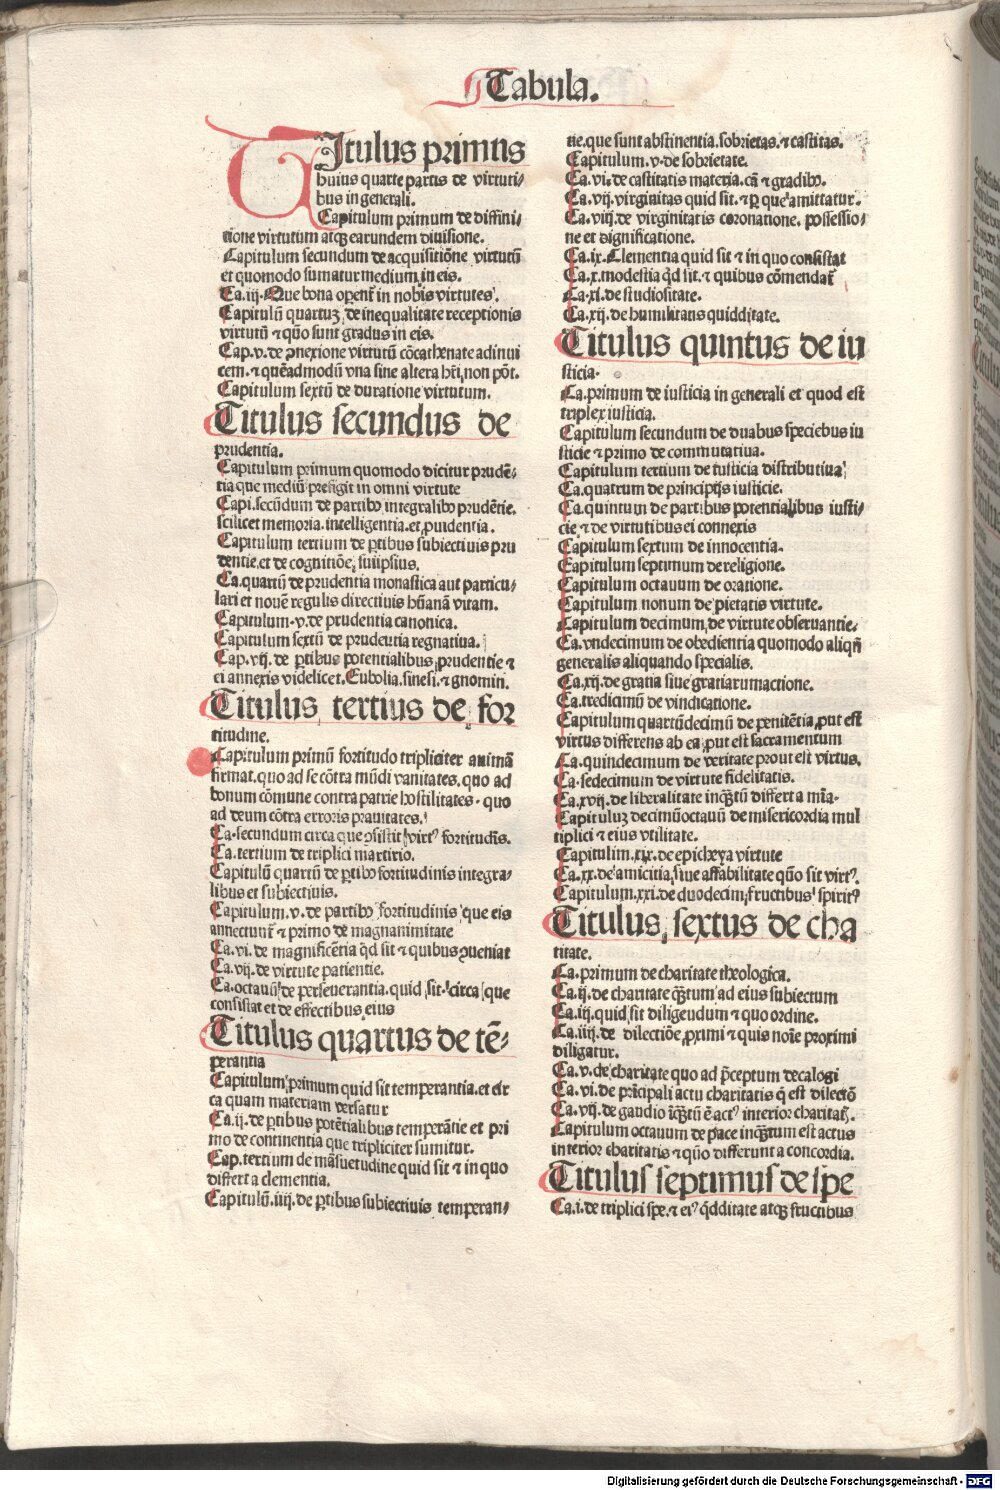 Tabula.
TItulus primus
huius quarte partis de virtuti⸗
bus in generali.
Capitulum primum de diffini⸗
tione virtutum atqꝫ earundem diuisione.
Capitulum secundum de acquisitiōne virtutū
et quomodo sumatur medium in eis.
Ca.iij. Que bona operent̄ in nobis virtutes.
Capitulū quartuꝫ de inequalitate receptionis
virtutū ⁊ quō sunt gradus in eis.
Cap.v. de ꝯnexione virtutū cōcathenate adinui
cem.⁊ quēadmodū vna sine altera hr̄i non pōt.
Capitulum sextū de duratione virtutum.
Titulus secundus de
prudentia.
Capitulum primum quomodo dicitur prudē⸗
tia que mediū prefigit in omni virtute
Capi.secūdum de partibꝰ integralibꝰ prudētie.
scilicet memoria.intelligentia.et ꝓuidentia.
Capitulum tertium de ꝑtibus subiectiuis pru
dentie.et de cognitiōe suiipsius.
Ca.quartū de prudentia monastica aut particu⸗
lari et nouē regulis directiuis hūanā vitam.
Capitulum.v.de prudentia canonica.
Capitulum sextū de prudentia regnatiua.
Cap.vij. de ꝑtibus potentialibus prudentie ⁊
ei annexis videlicet. Eubolia.sinesi.⁊ gnomin.
Titulus tertius de for
titudine.
Capitulum primū fortitudo tripliciter animā
firmat.quo ad se cōtra mūdi vanitates.quo ad
bonum cōmune contra patrie hostilitates.quo
ad deum cōtra erroris prauitates.
Ca.secundum circa que ꝯsistit virtꝰ fortitudīs.
Ca.tertium de triplici martirio.
Capitulū quartū de ꝑtibꝰ fortitudinis integra⸗
libus et subiectiuis.
Capitulum.v.de partibꝰ fortitudinis que eis
annectunt̄ ⁊ primo de magnanimitate
Ca.vi.de magnificētia qd sit ⁊ quibus ꝯueniat
Ca.vij.de virtute patientie.
Ca.octauū de perseuerantia.quid sit.circa que
consistat et de effectibus eius
Titulus quartus de tē⸗
perantia
Capitulum primum quid sit temperantia.et cir
ca quam materiam versatur
Ca.ij.de ꝑtibus potētialibus temperātie et pri
mo de continentia que tripliciter sumitur.
Cap.tertium de māsuetudine quid sit ⁊ in quo
differt a clementia.
Capitulū.iiij.de ꝑtibus subiectiuis temperan⸗
tie.que sunt abstinentia.sobrietas.⁊ castitas.
Capitulum.v.de sobrietate.
Ca.vi.de castitatis materia.cā ⁊ gradibꝰ.
Ca.vij.virginitas quid sit.⁊ ꝑ que amittatur.
Ca.viij.de virginitatis coronatione. possessio⸗
ne et dignificatione.
Ca.ix.Clementia quid sit ⁊ in quo consistat
Ca.x.modestia qd sit.⁊ quibus cōmendat̄
Ca.xi.de studiositate.
Ca.xij.de humilitatis quidditate.
Titulus quintus de iu
sticia.
Ca.primum de iusticia in generali et quod est
triplex iusticia.
Capitulum secundum de duabus speciebus iu
sticie ⁊ primo de commutatiua.
Capitulum tertium de iusticia distributiua
Ca.quatrum de principijs iusticie.
Ca.quintum de partibus potentialibus iusti⸗
cie ⁊ de virtutibus ei connexis
Capitulum sextum de innocentia.
Capitulum septimum de religione.
Capitulum octauum de oratione.
Capitulum nonum de pietatis virtute.
Capitulum decimum de virtute obseruantie.
Ca.vndecimum de obedientia quomodo aliqñ
generalis aliquando specialis.
Ca.xij.de gratia siue gratiarumactione.
Ca.tredicimū de vindicatione.
Capitulum quartūdecimū de penitētia ꝓut est
virtus differens ab ea ꝓut est sacramentum
Ca.quindecimum de veritate prout est virtus.
Ca.sedecimum de virtute fidelitatis.
Ca.xvij.de liberalitate inqꝫtū differt a mīa.
Capituluꝫ decimūoctauū de misericordia mul
tiplici ⁊ eius vtilitate.
Capitulim.xix.de epicheya virtute
Ca.xx.de amicitia siue affabilitate quō sit virtꝰ.
Capitulum.xxi.de duodecim fructibus spiritꝰ
Titulus sextus de cha
titate.
Ca.primum de charitate theologica.
Ca.ij.de charitate qꝫtum ad eius subiectum
Ca.iij.quid sit diligendum ⁊ quo ordine.
Ca.iiij.de dilectiōe ꝓximi ⁊ quis noīe proximi
diligatur.
Ca.v.de charitate quo ad p̄ceptum decalogi
Ca.vi.de prīcipali actu charitatis q̄ est dilectō
Ca.vij.de gaudio īqꝫtū ē actꝰ interior charitat̄.
Capitulum octauum de pace inqꝫtum est actus
interior charitatis ⁊ quō differunt a concordia.
Titulus septimus de spe
Ca.i.de triplici spe.⁊ eiꝰ qdditate atqꝫ fructibus
Digitalisierung gefördert durch die Deutsche Forschungsgemeinschaft - DFG